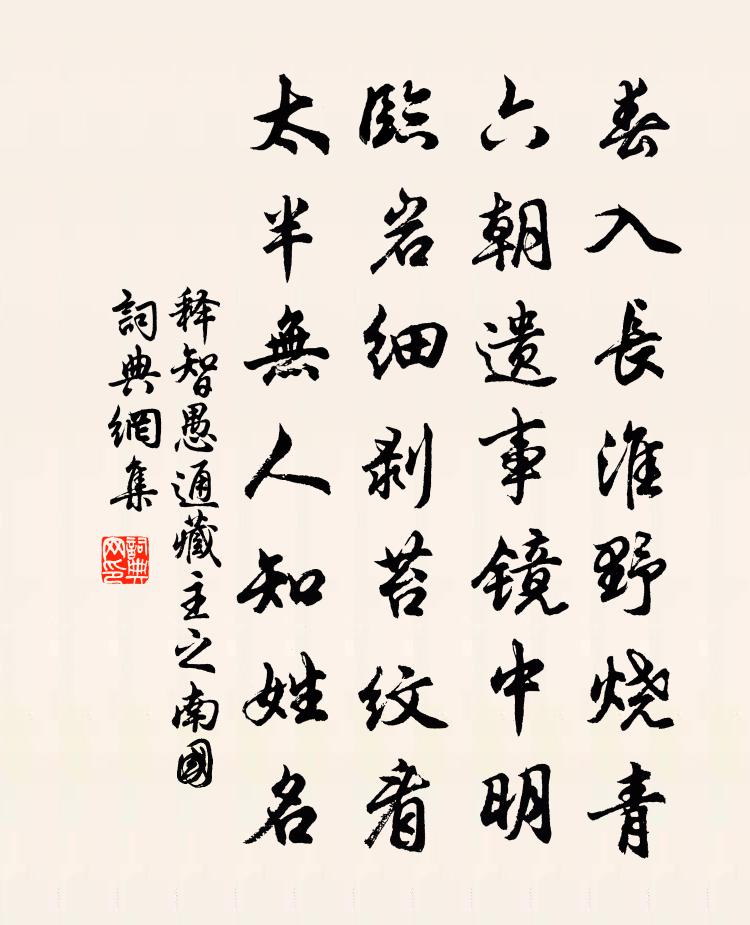 春入長淮野烧青
六朝遗事镜中明
臨岩细剥苔纹看
太半無人知姓名
释智愚通藏主之南國
詞典網集
詞典网印